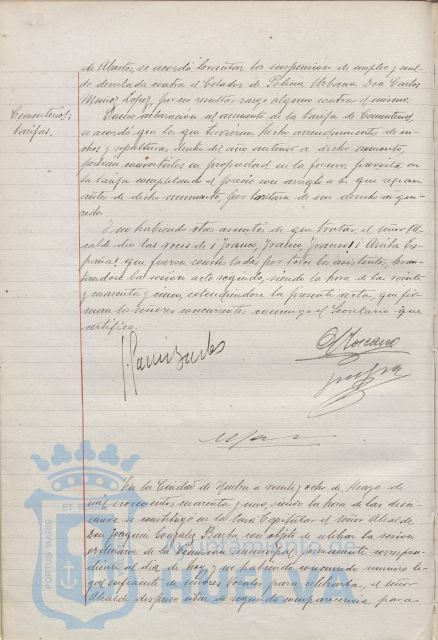 de Abastos, se acordó levantar la suspensión de empleo y suel-
do decretada contra el Celador de Policía Urbana Don Carlos
Muñoz López, por no resultar cargo alguno contra el mismo.
Cementerios;
tarifas.
Como aclaración al aumento de la tarifa de Cementerios,
se acordó que los que tuvieran hecho arrendamiento de ni-
chos y sepulturas, dentro del año anterior a dicho aumento,
podrán convertirlos en propiedad en la forma prevista en
la tarifa completando el precio con arreglo a lo que regían
antes de dicho aumento, por tratarse de un derecho adqui-
rido.
Y no habiendo otros asuntos de que tratar el señor Al-
calde dió las voces de ¡Franco, Franco, Franco! ¡Arriba Es-
paña!, que fueron contestadas por todos los asistentes, levan-
tándose la sesión acto seguido, siendo la hora de las veinte
y cuarenta y cinco, extendiéndose la presente acta, que fir-
man los señores concurrentes conmigo el Secretario que
certifico.
Moscano
En la Ciudad de Huelva a veinte y ocho de Mayo de
mil novecientos cuarenta y uno, siendo la hora de las diez y
nueve se constituyó en la Casa Capitular el señor Alcalde
Don Joaquín González Barba con objeto de celebrar la sesión
ordinaria de la Comisión municipal permanente correspon-
diente al día de hoy, y no habiendo concurrido número le-
gal suficiente de señores Vocales para celebrarla, el señor
Alcalde dispuso citar de segunda comparecencia para
PORTUS MARIS
Ayuntamiento
HUELVA